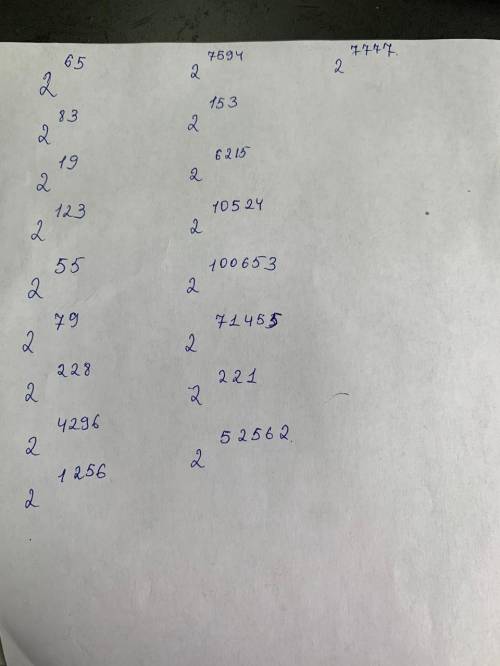 2^65
2^83
2^19
2^123
2^55
2^79
2^228
2^4296
2^1256
2^7594
2^153
2^6215
2^10524
2^100653
2^71455
2^221
2^52562
2^7777.